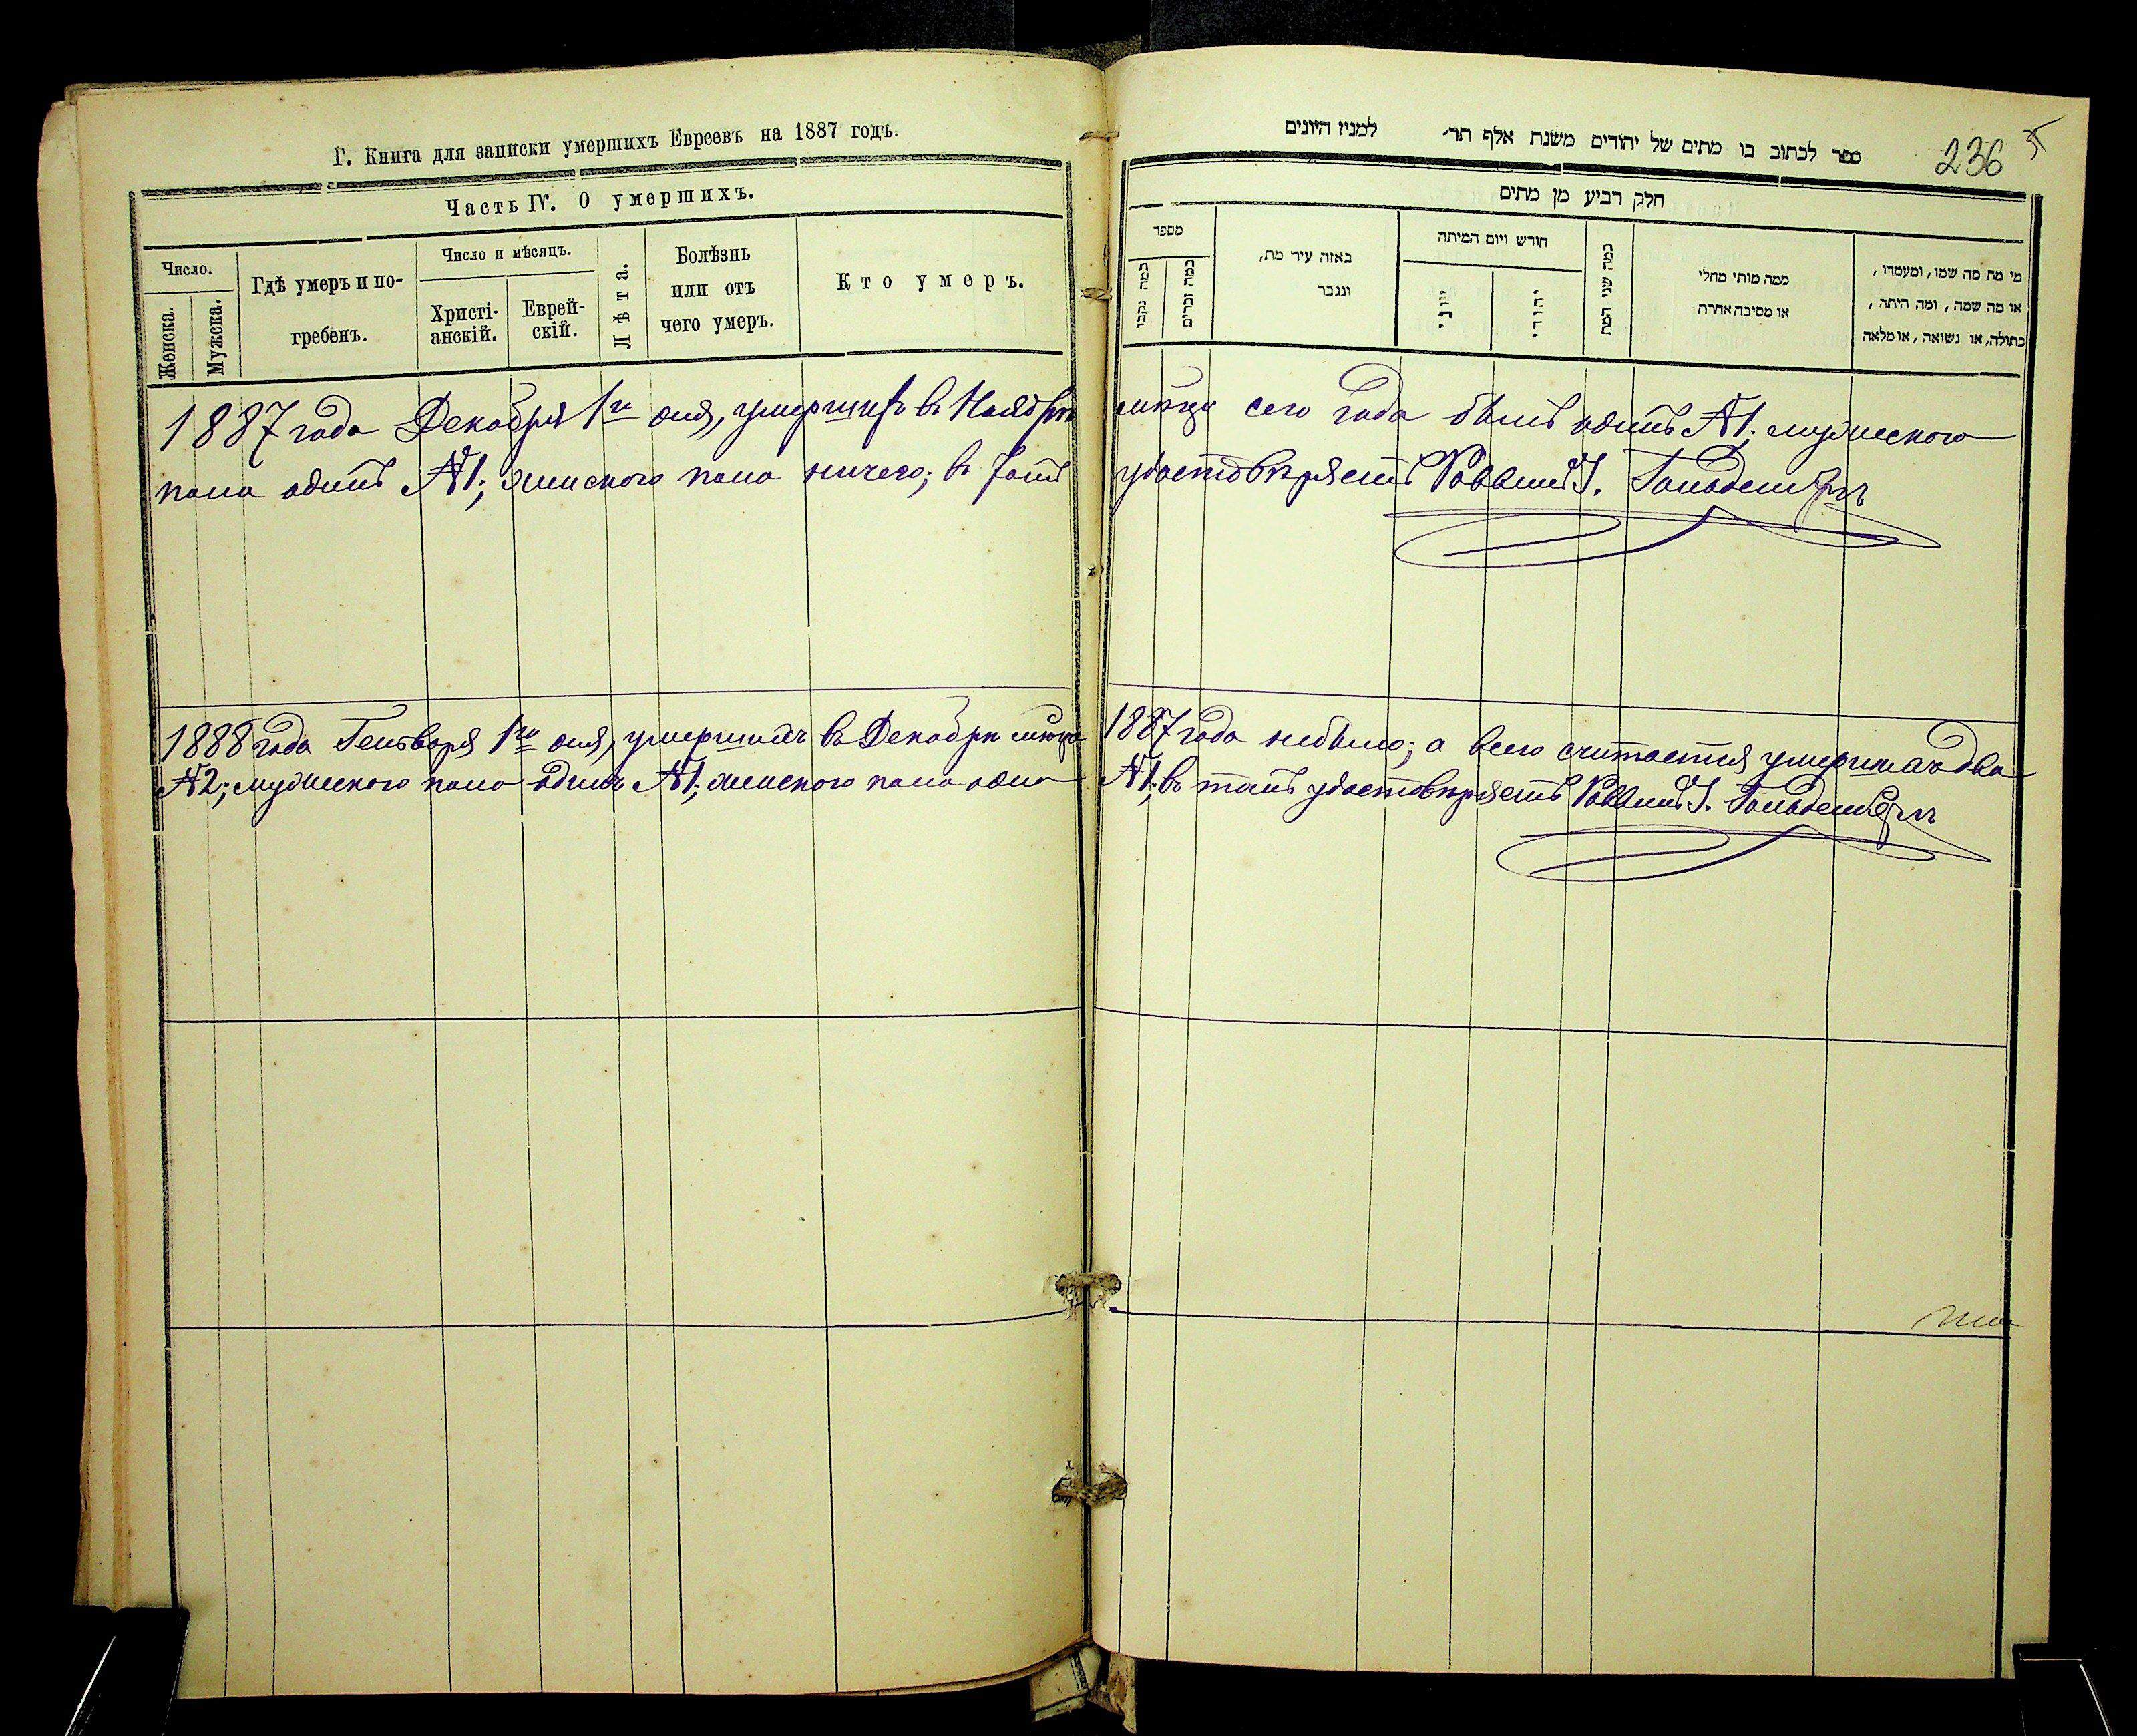 Г. Книга для записки умершихъ Евреевъ на 1887 годъ.
Часть IV. О умершихъ.
Число.
Женска.
Мужска.
Гдѣ умеръ и по-
гребенъ.
Число и мѣсяцъ.
Христі-
анскій.
Еврей-
скій.
Лѣта.
Болѣзнь
или отъ
чего умеръ.
Кто умеръ.
ספר לכתוב בו מתים של יהודים משנת אלף תר׳ למניז היונים
236
חלק רביע מן מתים
מספר
כמה נקבו
כמה זכרים
באזה עיר מת,
ונגבר
חודש ויום המיתה
יוני
יהודי
כמה שני המת
ממה מותי מחלי
או מסיבה אחרת
מי מת מה שמו, ומעמדו,
או מה שמה, ומה היתה,
בתולה, או נשואה, או מלאה
1887 года Декабря 1го дня, умершихъ въ Ноябрѣ мѣсяцѣ сего года былъ одинъ №1; мужеского
пола одинъ №1; женского пола ничего; въ томъ удостовѣряетъ Раввинъ I.
1888 года Генваря 1го дня, умершихъ въ Декабрѣ мѣсяцѣ 1887 года небыло; а всего считается умершихъ два
№2; мужеского пола одинъ №1; женского пола одна №1; въ томъ удостовѣряетъ Раввинъ I.